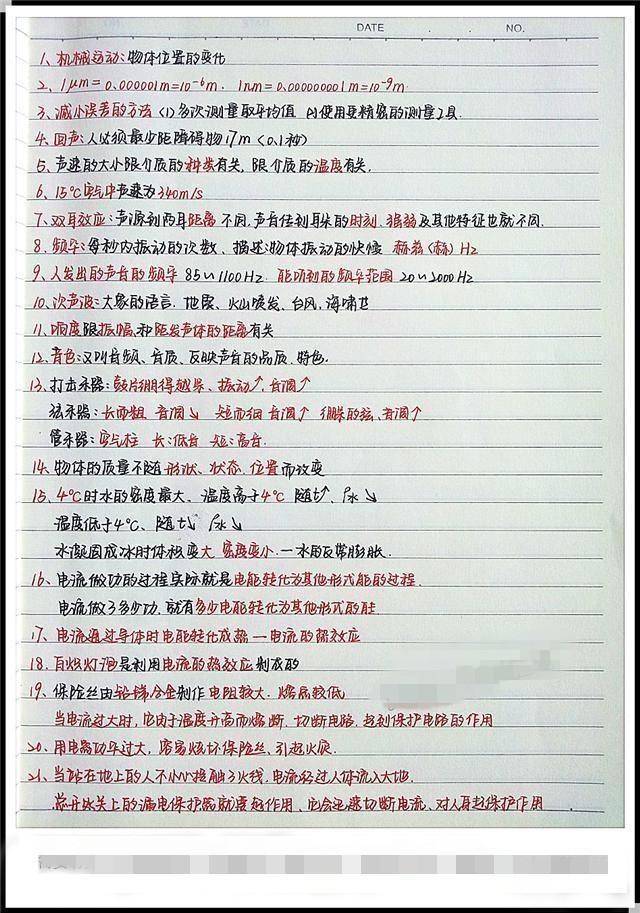 DATE
NO.
1、机械运动:物体位置的变化
2、1μm=0.000001m=10⁻⁶m. 1nm=0.000000001m=10⁻⁹m.
3、减小误差的方法 (1)多次测量取平均值 (2)使用更精密的测量工具.
4、回声:人必须最少距障碍物17m (0.1秒)
5、声速的大小跟介质的种类有关,跟介质的温度有关.
6、15℃空气中声速为340m/s
7、双耳效应:声源到两耳距离不同,声音传到耳朵的时刻、强弱及其他特征也就不同.
8、频率:每秒内振动的次数、描述物体振动的快慢 赫兹(赫)Hz
9、人发出的声音的频率85~1100Hz. 能听到的频率范围20~2000Hz
10、次声波:大象的语言、地震、火山喷发、台风、海啸
11、响度跟振幅、和距发声体的距离有关
12、音色:又叫音频、音质、反映声音的品质、特色.
13、打击乐器:鼓片绷得越紧、振动↑,音调↑
弦乐器:长而粗 音调↓ 短而细 音调↑ 绷紧的弦、音调↑
管乐器:空气柱 长:低音 短:高音.
14、物体的质量不随形状、状态、位置而改变
15、4℃时水的密度最大、温度高于4℃ 随t↑、ρ水↓
温度低于4℃、随t↓ ρ水↓
水凝固成冰时体积变大 密度变小.—水的反常膨胀.
16、电流做功的过程实际就是电能转化为其他形式能的过程.
电流做了多少功.就有多少电能转化为其他形式的能
17、电流通过导体时电能转化成热—电流的热效应
18、白炽灯泡是利用电流的热效应制成的
19、保险丝由铅锑合金制作 电阻较大.熔点较低
当电流过大时,它由于温度升高而熔断.切断电路.起到保护电路的作用
20、用电器功率过大,容易烧坏保险丝、引起火灾.
21、当站在地上的人不小心接触了火线,电流经过人体流入大地.
总开关上的漏电保护器就要起作用、它会迅速切断电流、对人身起保护作用